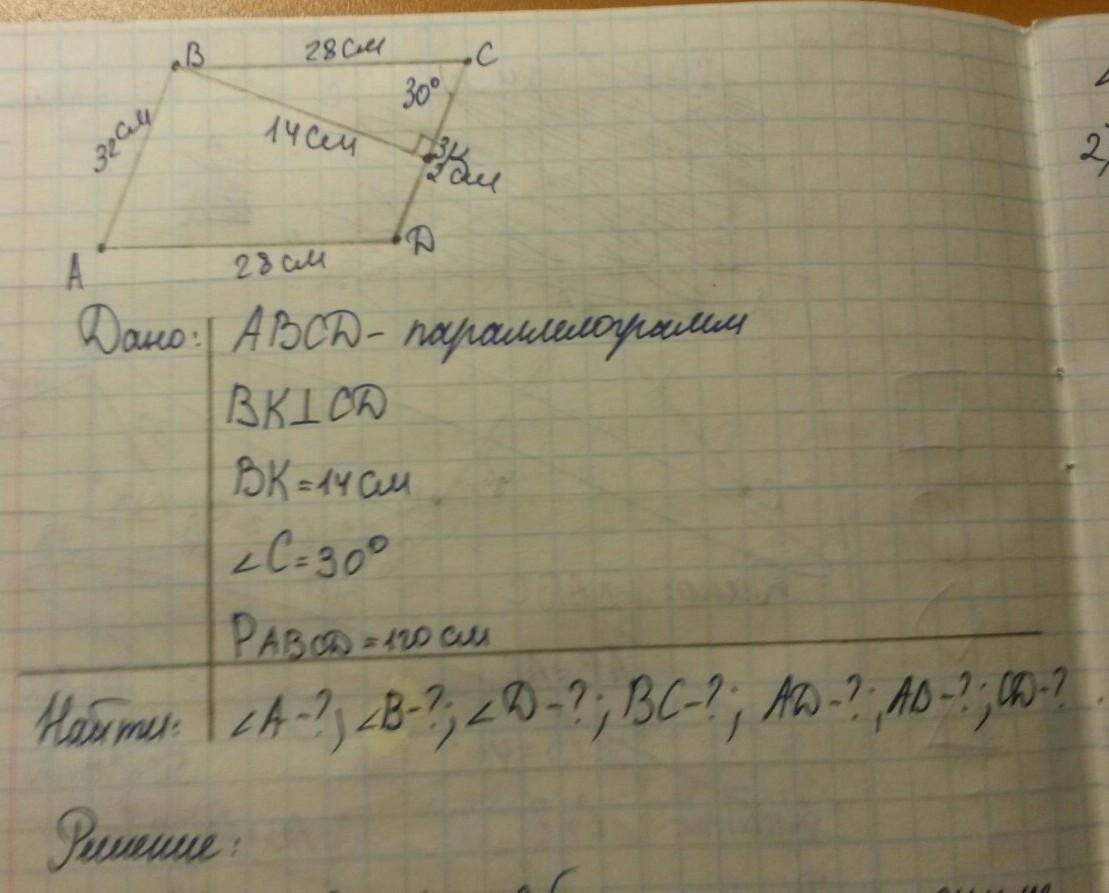 B 28см C
30°
32см
14см
K
32см
A 28см D
Дано: ABCD - параллелограмм
BK⊥CD
BK=14см
∠C=30°
PABCD=120см
Найти: ∠A-?; ∠B-?; ∠D-?; BC-?; AD-?; AB-?; CD-?
Решение:
2)